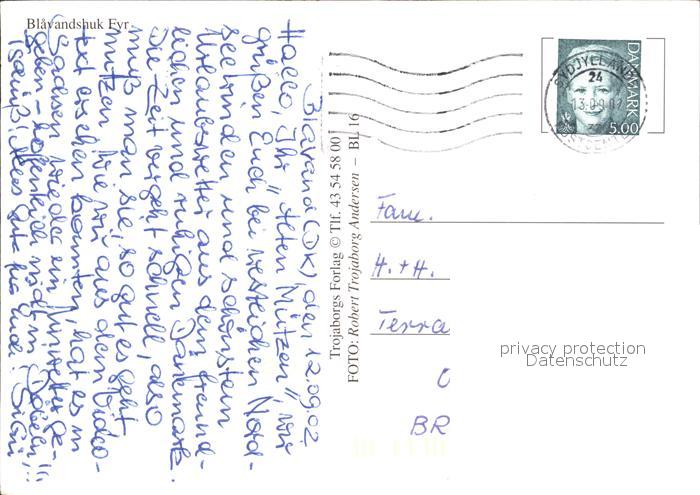 Blåvandshuk Fyr
Blåvand (DK), den 12.09.02
Hallo, Ihr "Alten Mützen", wir
grüßen Euch bei westlichen Nord-
seewinden und schönstem
Urlaubswetter aus dem freund-
lichen und ruhigen Dänemark.
Die Zeit vergeht schnell, also
muß man sie, so gut es geht
nützen. Wie wir aus dem Video-
text ersehen konnten, hat es in
Sachsen wieder ein Unwetter ge-
geben - hoffentlich nicht in Döbeln!!!
Tschüß! Alles Gute für Euch!
Trojaborgs Forlag © Tlf. 43 54 58 00
FOTO: Robert Trojaborg Andersen – BL 16
DANMARK
5.00
SYDJYLLANDS
24
13.09.02
POSTCENTER
Fam.
H. + H.
Terra
BR
privacy protection
Datenschutz